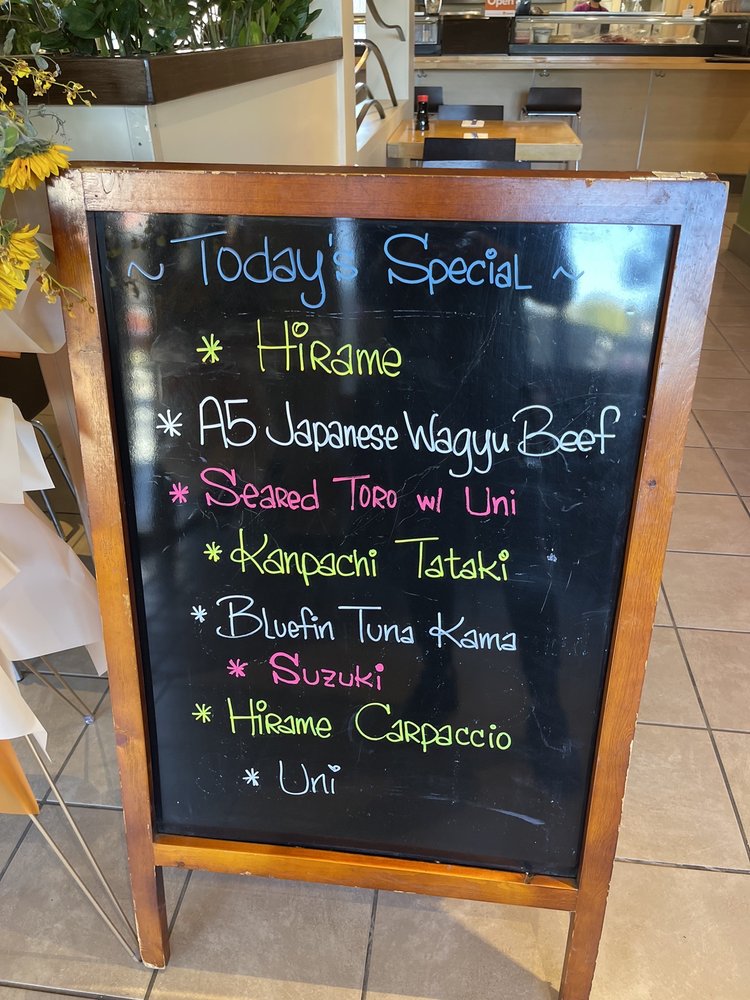 Open
~ Today's Special ~
* Hirame
* A5 Japanese Wagyu Beef
* Seared Toro w/ Uni
* Kanpachi Tataki
* Bluefin Tuna Kama
* Suzuki
* Hirame Carpaccio
* Uni